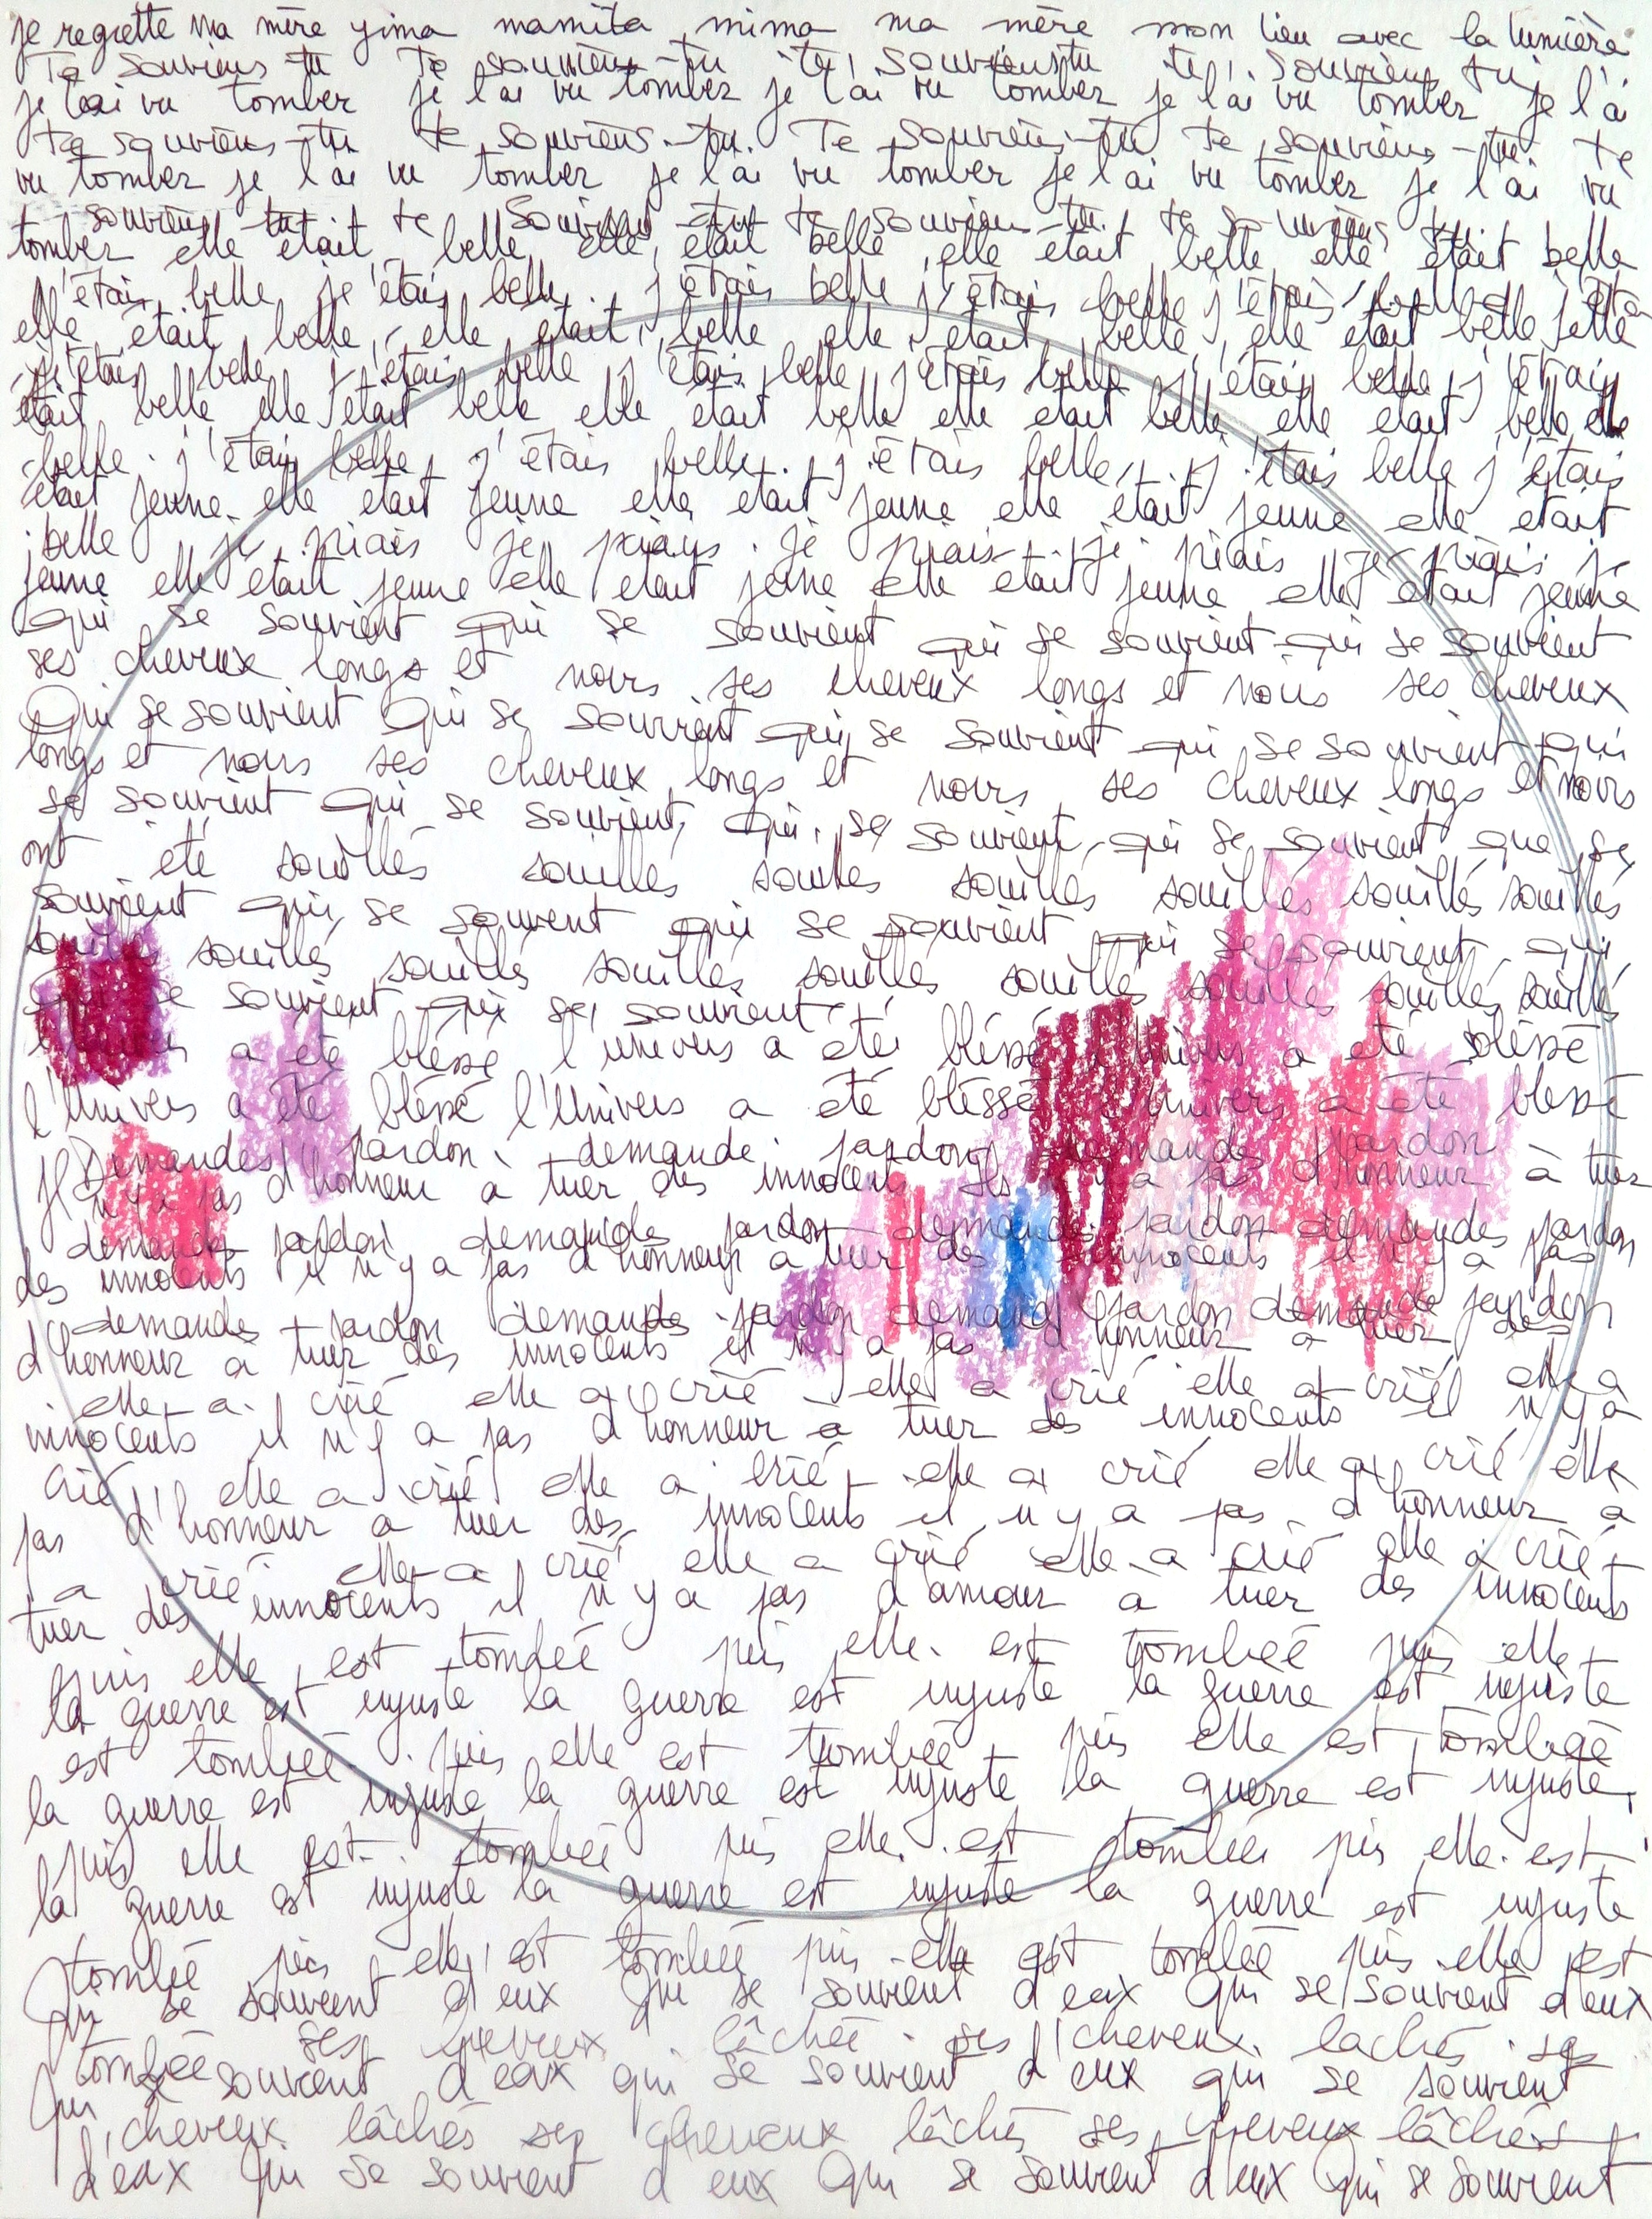 je regrette ma mère yima mamita mima ma mère mon lien avec la lumière
Te souviens-tu Te souviens-tu te souviens tu te souviens tu
je l'ai vu tomber je l'ai vu tomber je l'ai vu tomber je l'ai vu tomber je l'ai
te souviens-tu te souviens-tu. Te souviens-tu te souviens-tu. te
vu tomber je l'ai vu tomber je l'ai vu tomber je l'ai vu tomber je l'ai vu
souviens-tu te souviens-tu te souviens-tu. te souviens tu.
tomber elle était belle elle était belle elle était belle elle était belle
j'étais belle je étais belle. j'étais belle j'étais belle j'étais belle j'étais
elle était belle, elle était belle elle était belle, elle était belle elle
j'étais belle j'étais belle j'étais belle j'étais belle j'étais belle j'étais
était belle elle était belle elle était belle elle était belle elle était belle elle
belle. j'étais belle, j'étais belle. j'étais belle, j'étais belle j'étais
était jeune. elle était jeune elle était jeune elle était jeune elle était
belle je priais je priais. je priais. je priais je priais. je
jeune elle était jeune elle était jeune elle était jeune elle était jeune
qui se souvient qui se souvient qui se souvient qui se souvient
ses cheveux longs et noirs ses cheveux longs et noirs ses cheveux
Qui se souvient Qui se souvient qui se souvient qui se souvient qui
longs et noirs ses cheveux longs et noirs ses cheveux longs et noirs
se souvient qui se souvient, qui se souvient, qui se souvient que se
ont été souillés souillés souillés souillés souillés souillés souillés
souvient qui se souvent qui se souvient qui se souvient. qui
souillés souillés souillés souillés souillés souillés souillés souillés souillés
se souvient qui se souvient
a été bléssé l'univers a été bléssé l'univers a été bléssé
l'Univers a été bléssé l'Univers a été bléssé l'univers a été bléssé
Demandes pardon. demande. pardon demandes pardon
Il n'y a pas d'honneur à tuer des innocents Il n'y a pas d'honneur à tuer
demandes pardon demandes pardon demandes pardon demandes pardon
des innocents il n'y a pas d'honneur à tuer des innocents il n'y a pas
demandes pardon demandes pardon demandes pardon demande pardon
d'honneur à tuer des innocents il n'y a pas d'honneur à tuer des
elle a crié elle a crié elle a crié elle a crié elle a
innocents il n'y a pas d'honneur à tuer des innocents il n'y a
crié elle a crié elle a crié elle a crié elle a crié elle
pas d'honneur à tuer des innocents il n'y a pas d'honneur à
a crié elle a crié elle a crié elle a crié elle a crié
tuer des innocents il n'y a pas d'amour a tuer des innocents
puis elle est tombée puis elle est tombée puis elle
la guerre est injuste la guerre est injuste la guerre est injuste
est tombée. puis elle est tombée puis elle est tombée
la guerre est injuste la guerre est injuste la guerre est injuste
puis elle est tombée puis elle est tombée puis elle est
la guerre est injuste la guerre est injuste la guerre est injuste
tombée puis elle est tombée puis elle est tombée puis elle est
Qui se souvient d'eux Qui se souvient d'eux Qui se souvient d'eux
tombée ses cheveux lâchés. ses cheveux lachés. ses
Qui se souvient d'eux qui se souvient d'eux qui se souvient
cheveux lâchés ses cheveux lâchés ses cheveux lâchés
d'eux Qui se souvient d'eux Qui se souvient d'eux Qui se souvient